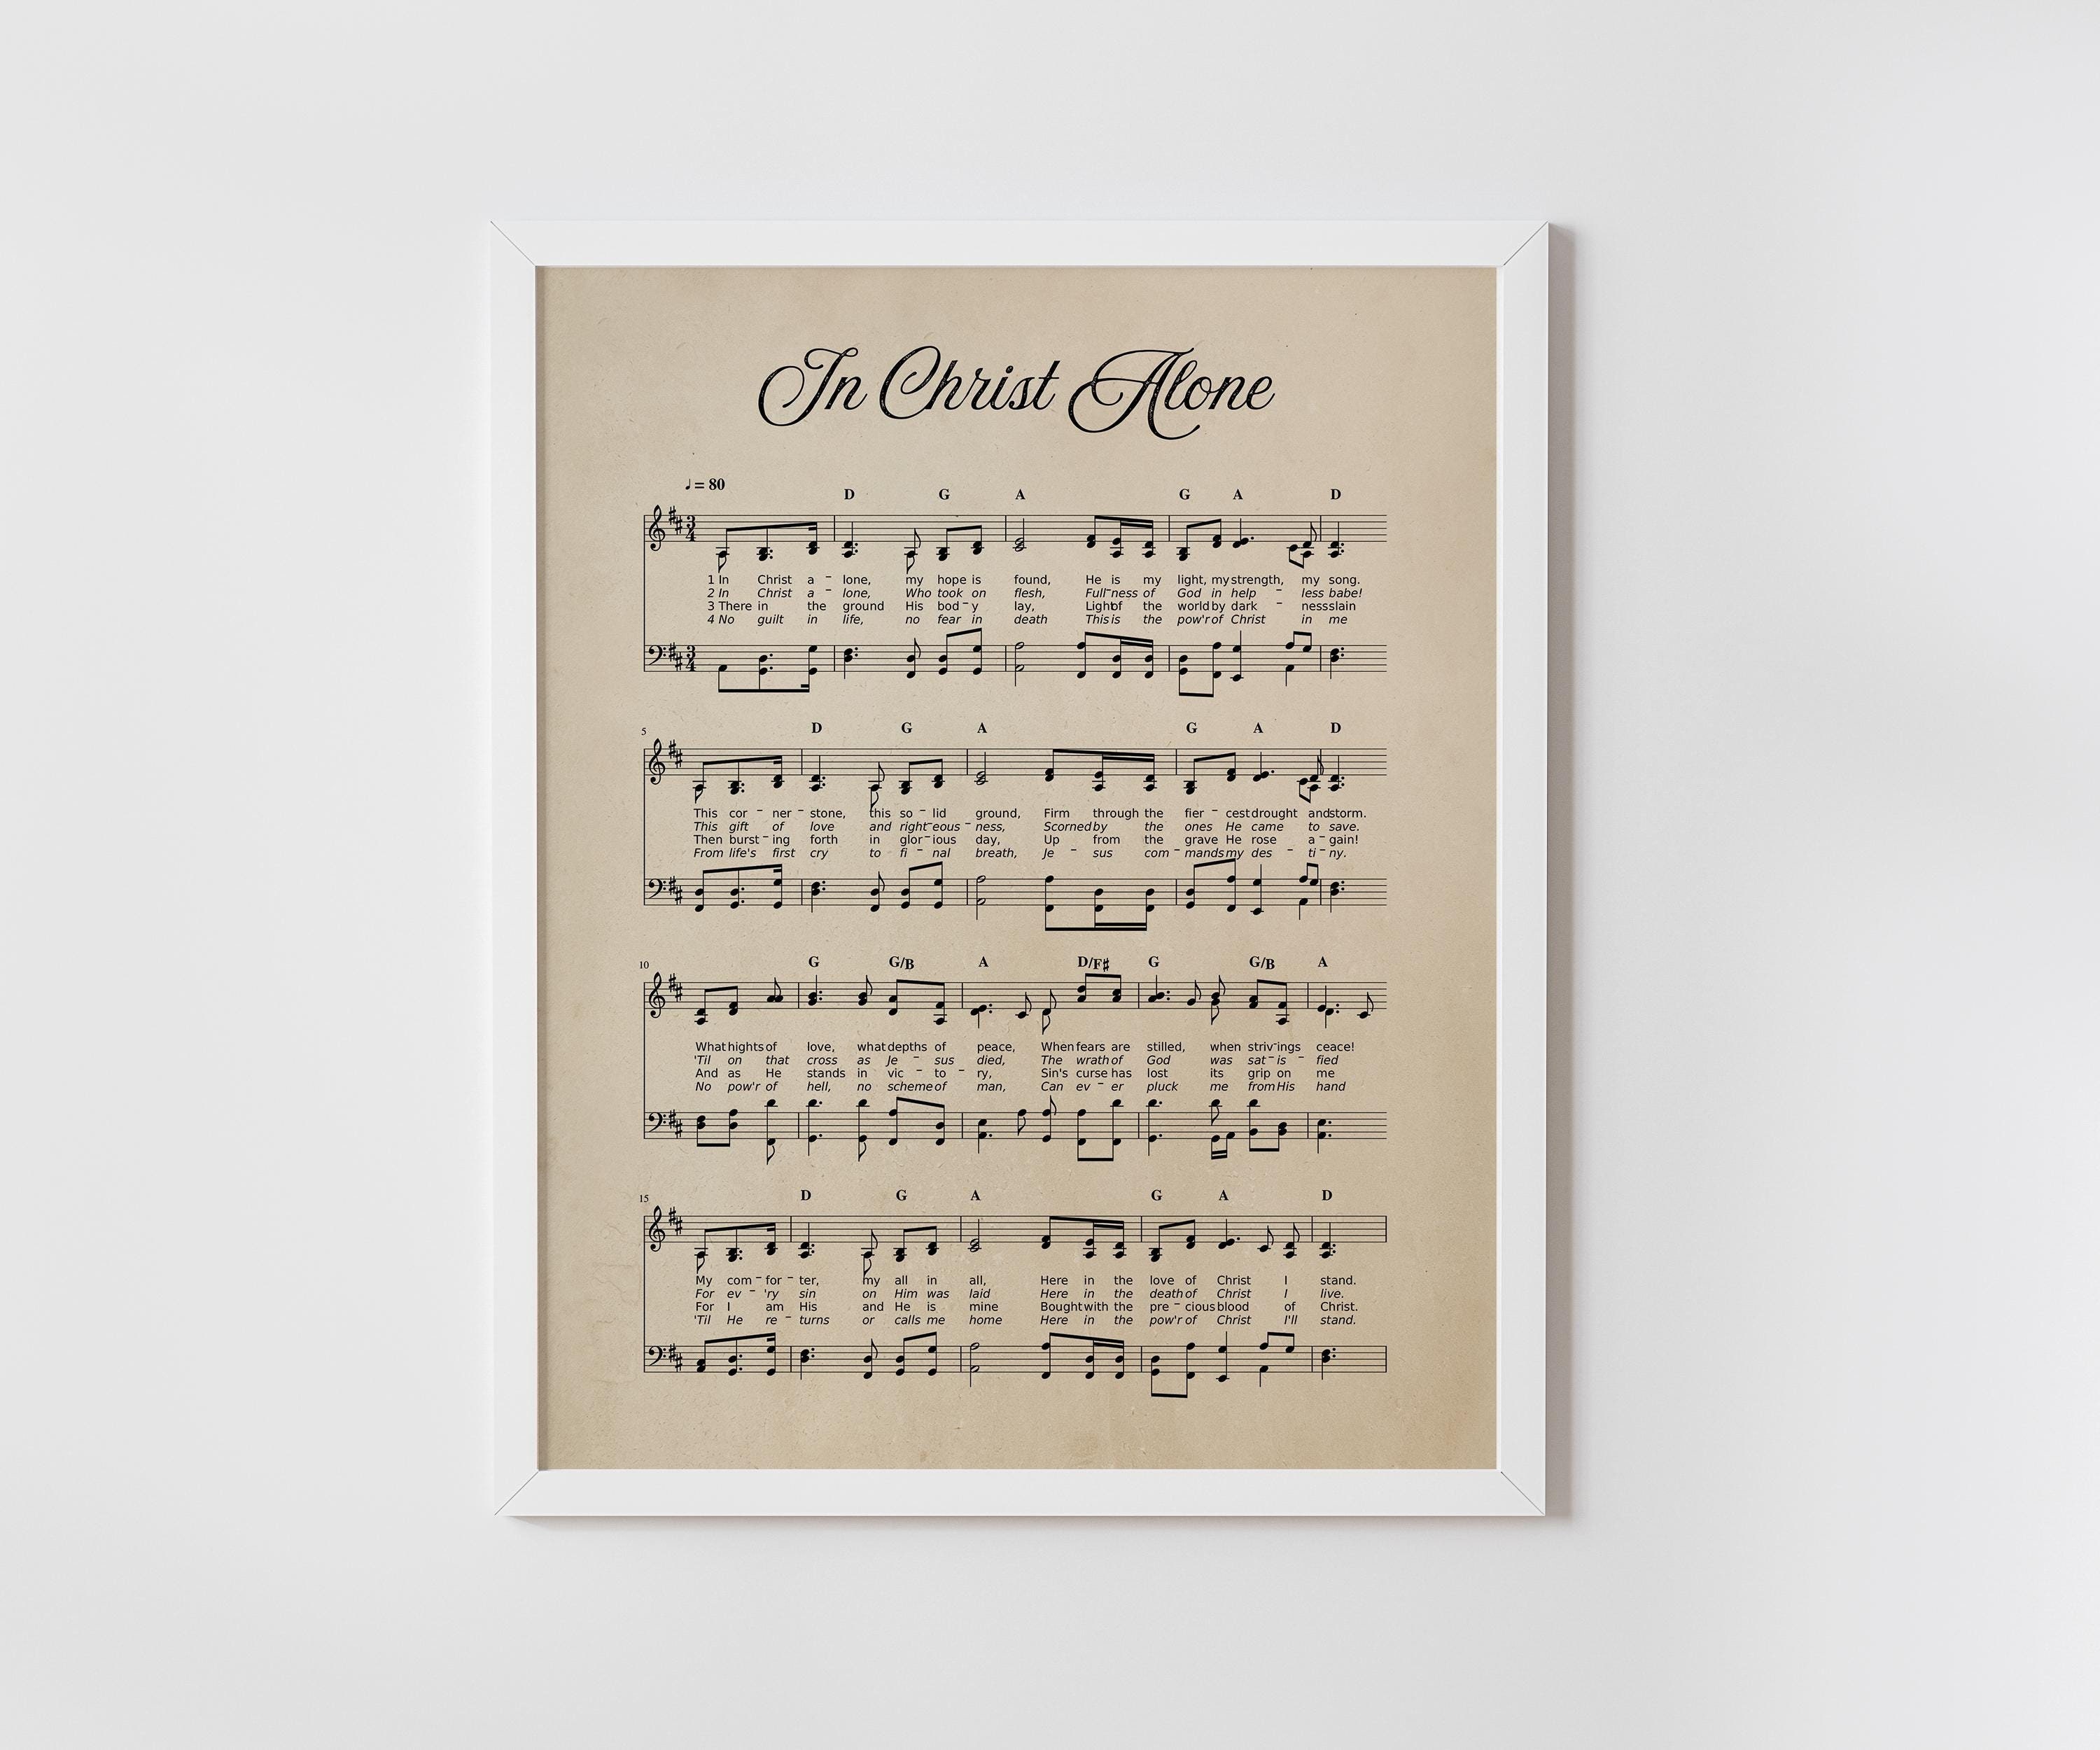 In Christ Alone
♩ = 80
D G A G A D
3 4
1 In Christ a - lone, my hope is found, He is my light, my strength, my song.
2 In Christ a - lone, Who took on flesh, Full-ness of God in help - less babe!
3 There in the ground His bod - y lay, Light of the world by dark - ness slain
4 No guilt in life, no fear in death This is the pow'r of Christ in me
3 4
5 D G A G A D
This cor - ner - stone, this so - lid ground, Firm through the fier - cest drought and storm.
This gift of love and right-eous - ness, Scorned by the ones He came to save.
Then burst - ing forth in glor - ious day, Up from the grave He rose a - gain!
From life's first cry to fi - nal breath, Je - sus com - mands my des - ti - ny.
10 G G/B A D/F♯ G G/B A
What hights of love, what depths of peace, When fears are stilled, when striv-ings ceace!
'Til on that cross as Je - sus died, The wrath of God was sat - is - fied
And as He stands in vic - to - ry, Sin's curse has lost its grip on me
No pow'r of hell, no scheme of man, Can ev - er pluck me from His hand
15 D G A G A D
My com - for - ter, my all in all, Here in the love of Christ I stand.
For ev - 'ry sin on Him was laid Here in the death of Christ I live.
For I am His and He is mine Bought with the pre - cious blood of Christ.
'Til He re - turns or calls me home Here in the pow'r of Christ I'll stand.